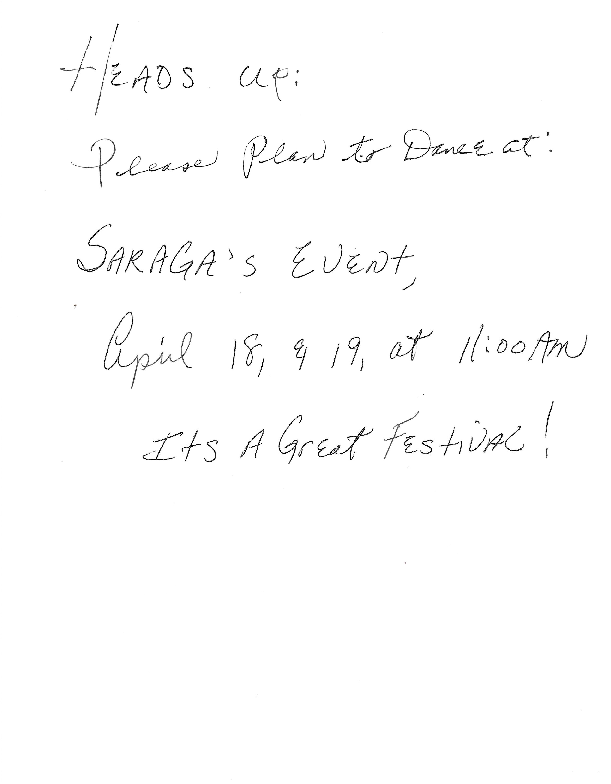 HEADS UP:
Please Plan to Dance at:
SARAGA's EVENT,
April 18, & 19, at 11:00 AM
Its A Great FESTIVAL!